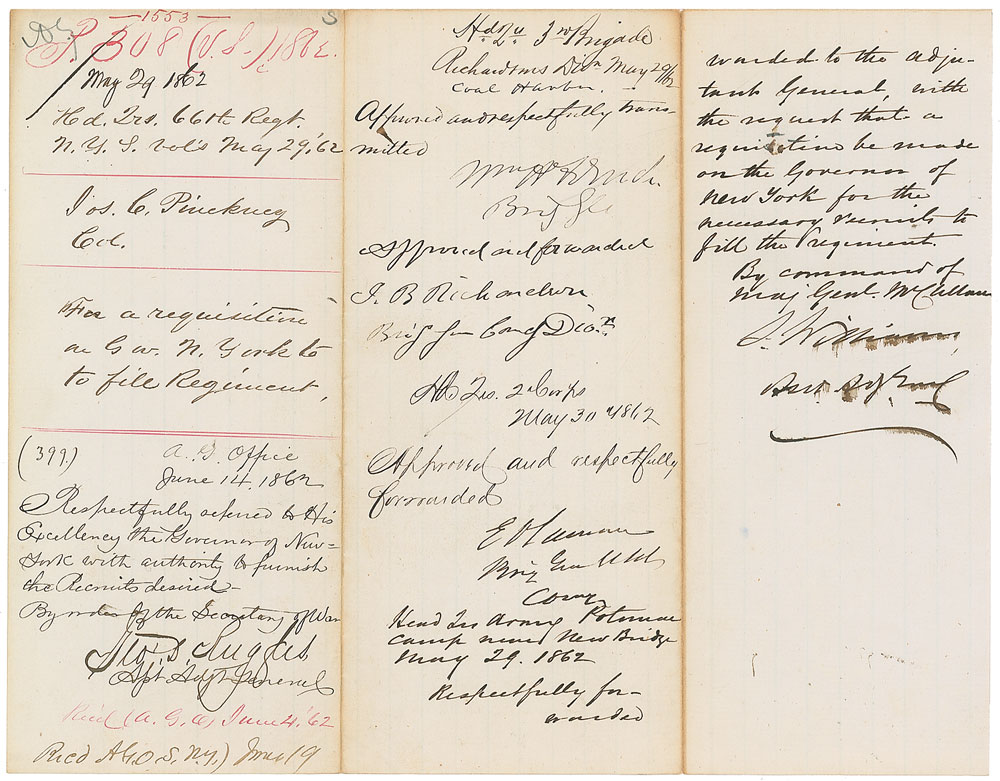 1553
S
P. 308 (V.S.) 1862.
May 29 1862
Hd. Qrs. 66th Regt.
N.Y.S. vol's May 29, '62
Jos. C. Pinckney
Col.
For a requisition
on Gov. N. York to
to fill Regiment,
(399.)
A. G. Office
June 14, 1862
Respectfully referred to His
Excellency the Governor of New-
York with authority to furnish
the Recruits desired
By order of the Secretary of War
Asst Adjt General
Rec'd (A.G.O.) June 4, '62
Rec'd A.G.O. S.N.Y.) June 19
Hd. Qu 3rd Brigade
Richardsons Divn May 29/62
Coal Harbor.
Approved and respectfully trans-
mitted
Wm H French.
Brig Gen
Approved and forwarded
I. B. Richardson
Brig Gen Comg Divn.
Hd Qrs. 2d Corps
May 30th 1862
Approved and respectfully
forwarded
E V Sumner
Brig Gen USA
Comg
Head Qrs Army Potomac
Camp near New Bridge
May 29. 1862
Respectfully for-
warded
warded to the adju-
tant General, with
the request that a
requisition be made
on the Governor of
New York for the
necessary recruits to
fill the regiment.
By command of
Maj Genl. McClellan
S. Williams,
Asst. Adj. Genl